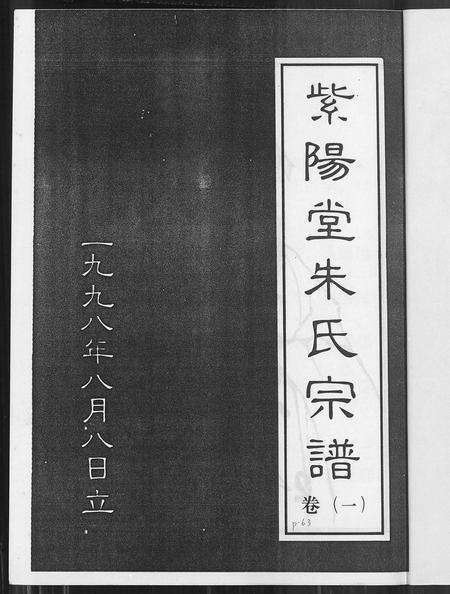 紫陽堂朱氏宗譜
卷(一)
p-63
一九九八年八月八日立